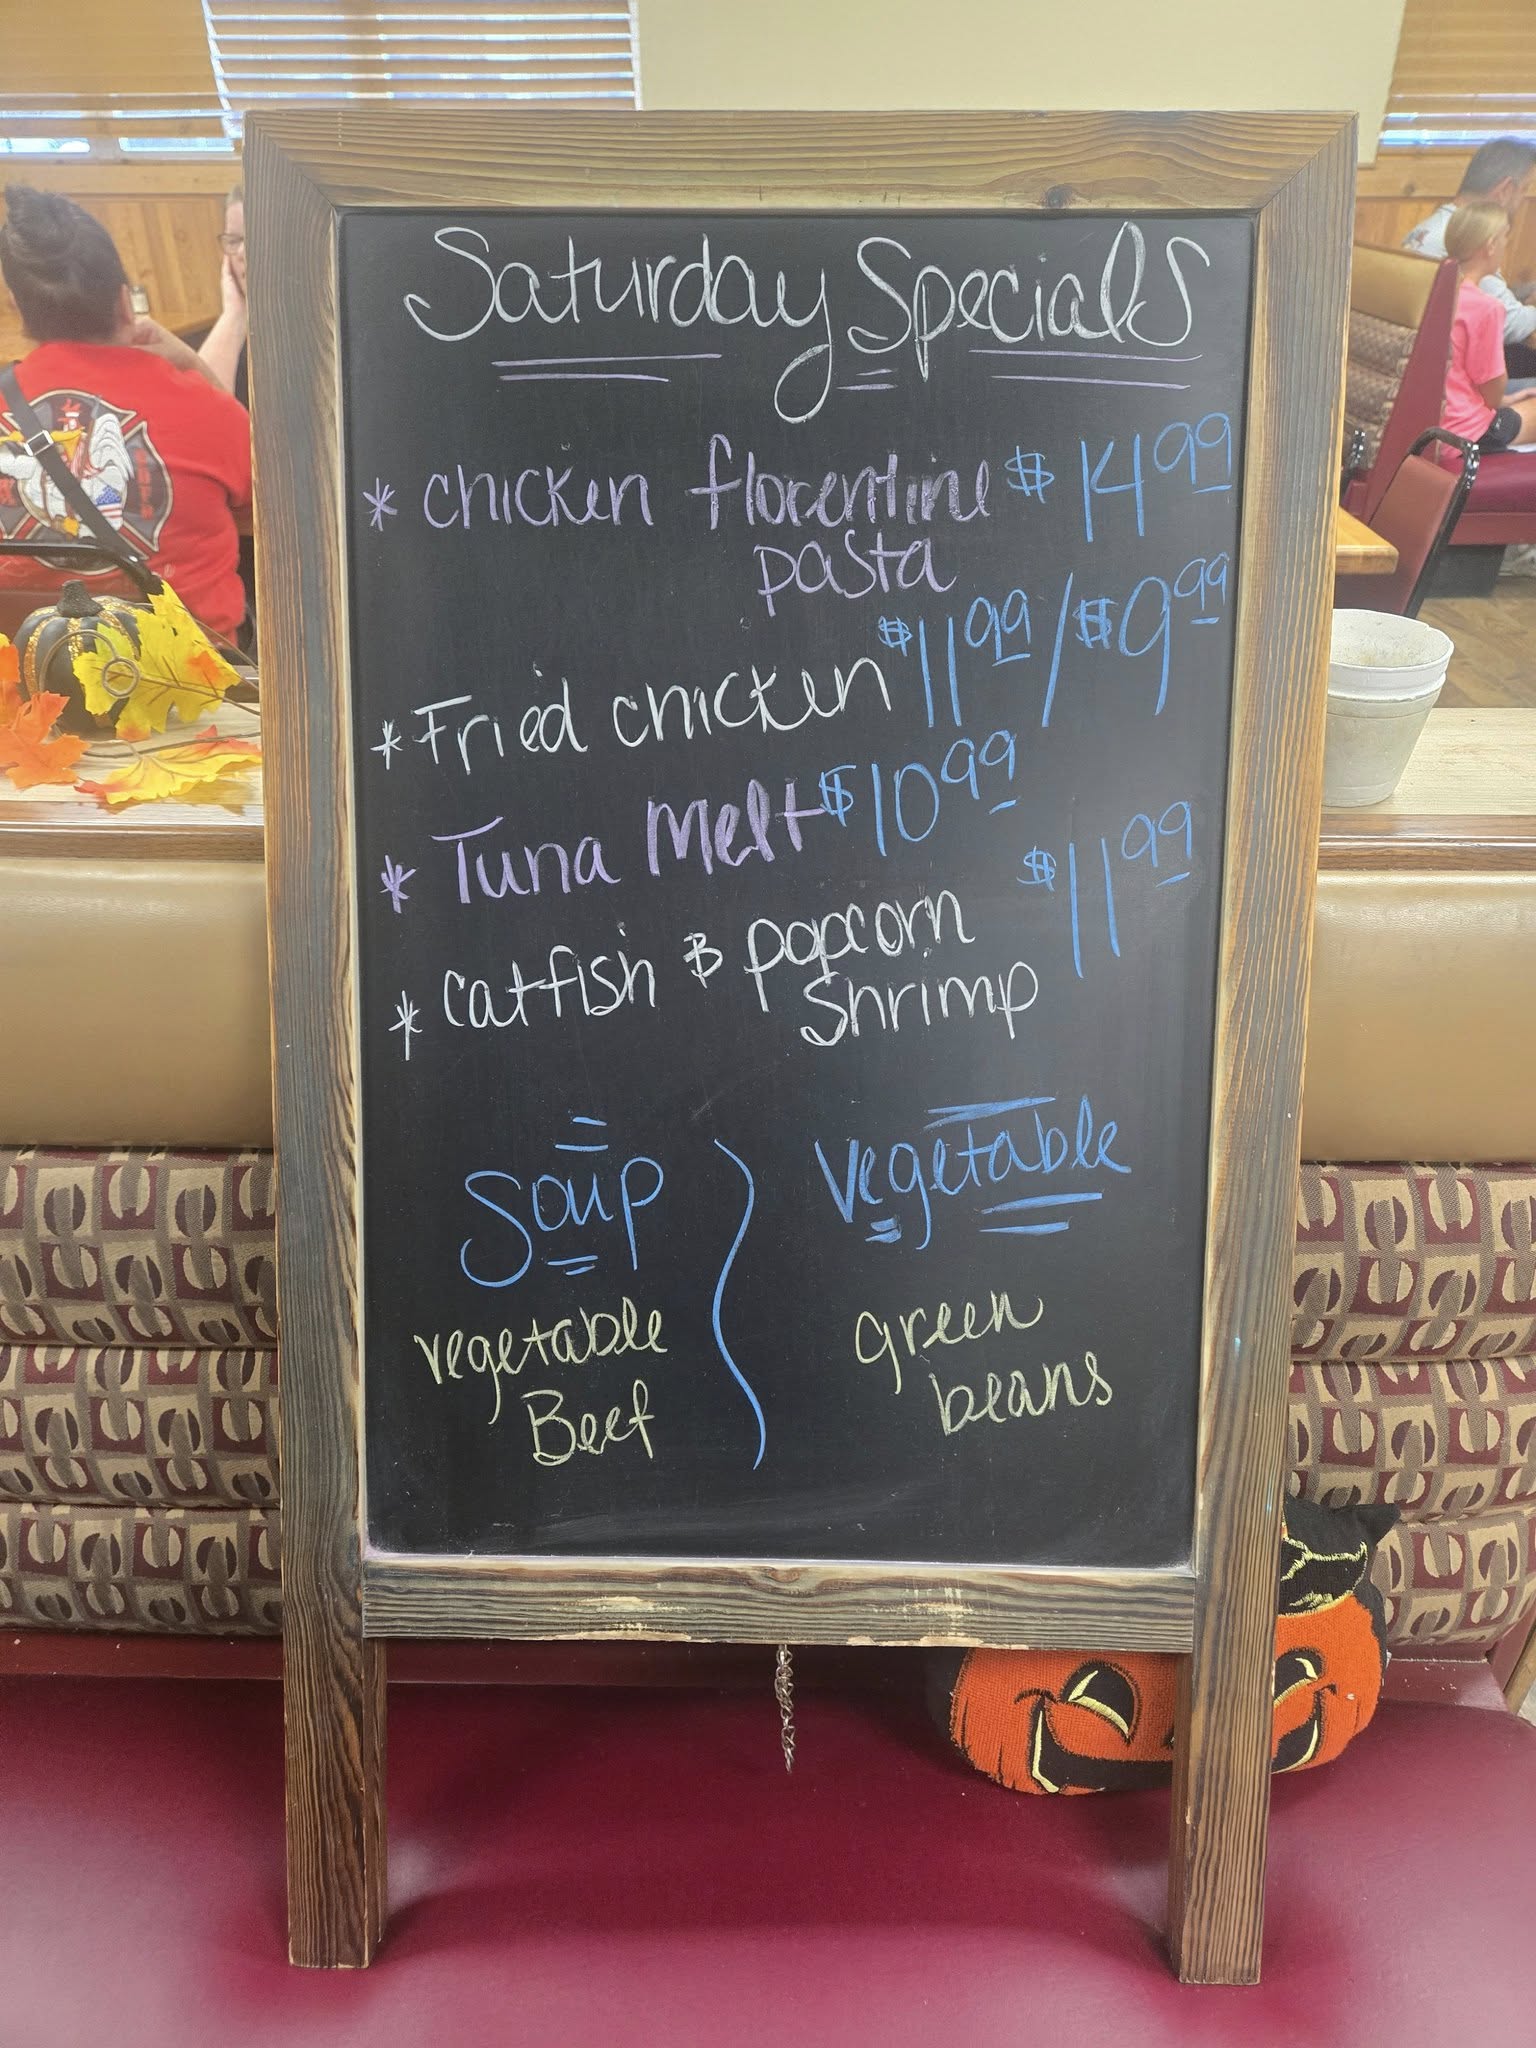 Saturday Specials
* chicken florentine $14.99
pasta
* Fried chicken $11.99/$9.99
* Tuna Melt $10.99
* catfish & popcorn $11.99
shrimp
Soup
vegetable
Beef
Vegetable
green
beans